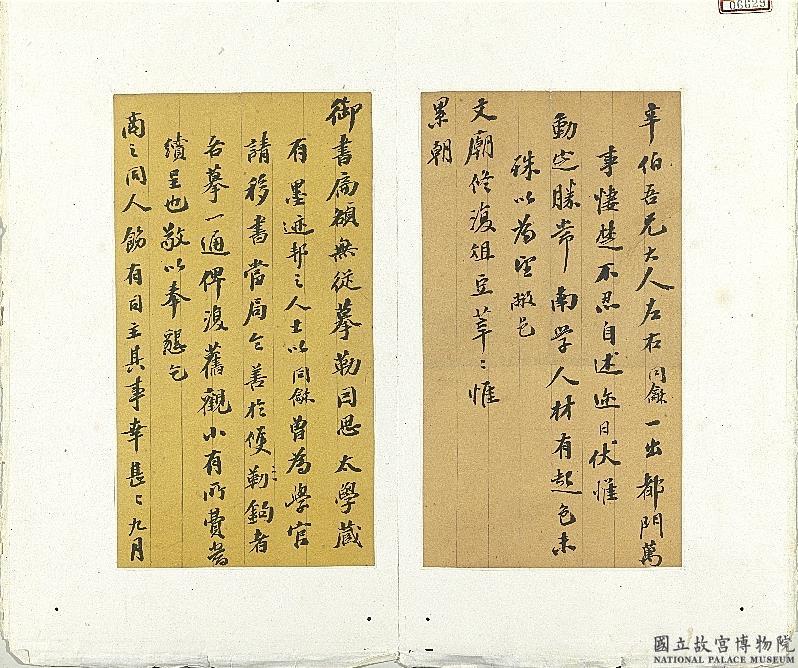 辛伯吾兄大人左右同龢一出都門萬
事悽楚不忍自述迩日伏惟
動定勝常南学人材有起色未
殊以為望敝邑
文廟修復俎豆莘〻惟
累朝
御書扁額無從摹勒因思太學藏
有墨迹邦之人士以同龢曾為學官
請移書當局令善於使勒鉤者
各摹一通俾復舊觀小有所費當
續呈也敬以奉懇乞
商之同人飭有司主其事幸甚〻九月
06629
國立故宮博物院
NATIONAL PALACE MUSEUM